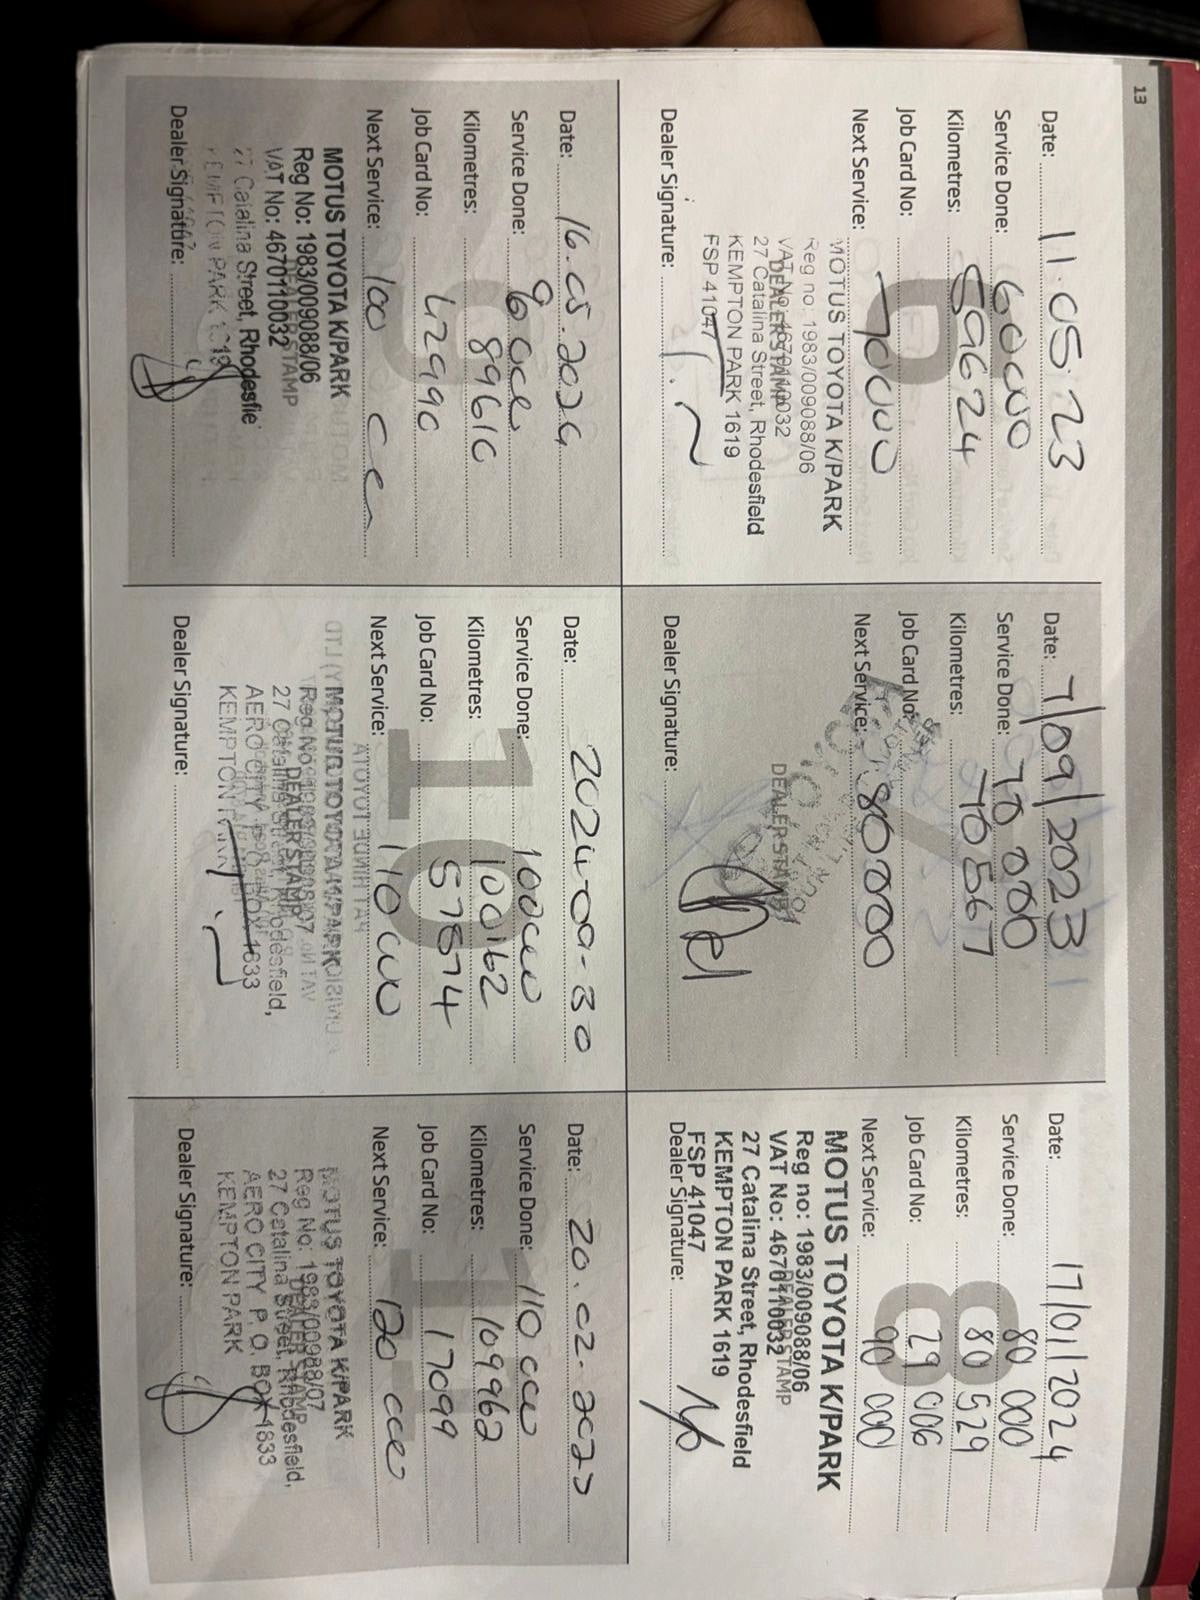 13
Date: 11.05.23
Service Done: 60000
Kilometres: 59624
Job Card No:
Next Service: 70000
MOTUS TOYOTA K/PARK
Reg no: 1983/009088/06
VAT No: 4670110032
DEALER STAMP
27 Catalina Street, Rhodesfield
KEMPTON PARK 1619
FSP 41047
Dealer Signature:
Date: 7/09/2023
Service Done: 70 000
Kilometres: 70567
Job Card No:
Next Service: 80000
DEALER STAMP
Dealer Signature:
Date: 17/01/2024
Service Done: 80 000
Kilometres: 80 529
Job Card No: 29 006
Next Service: 90 000
MOTUS TOYOTA K/PARK
Reg no: 1983/009088/06
VAT No: 4670110032
DEALER STAMP
27 Catalina Street, Rhodesfield
KEMPTON PARK 1619
FSP 41047
Dealer Signature:
Date: 16.05.2024
Service Done: 90000
Kilometres: 89610
Job Card No: 42990
Next Service: 100 000
MOTUS TOYOTA K/PARK
Reg No: 1983/009088/06
DEALER STAMP
VAT No: 4670110032
27 Catalina Street, Rhodesfie
KEMPTON PARK 1619
Dealer Signature:
10
Date: 2024-09-30
Service Done: 100000
Kilometres: 100162
Job Card No: 57574
Next Service: 110000
MOTUS TOYOTA K/PARK
DEALER STAMP
27 Catalina Street, Rhodesfield,
AERO CITY P.O. BOX 1833
KEMPTON PARK
Dealer Signature:
11
Date: 20.02.2025
Service Done: 110000
Kilometres: 109962
Job Card No: 17099
Next Service: 120 000
MOTUS TOYOTA K/PARK
Reg No: 1983/00988/07
DEALER STAMP
27 Catalina Street, Rhodesfield,
AERO CITY P. O. BOX 1833
KEMPTON PARK
Dealer Signature: